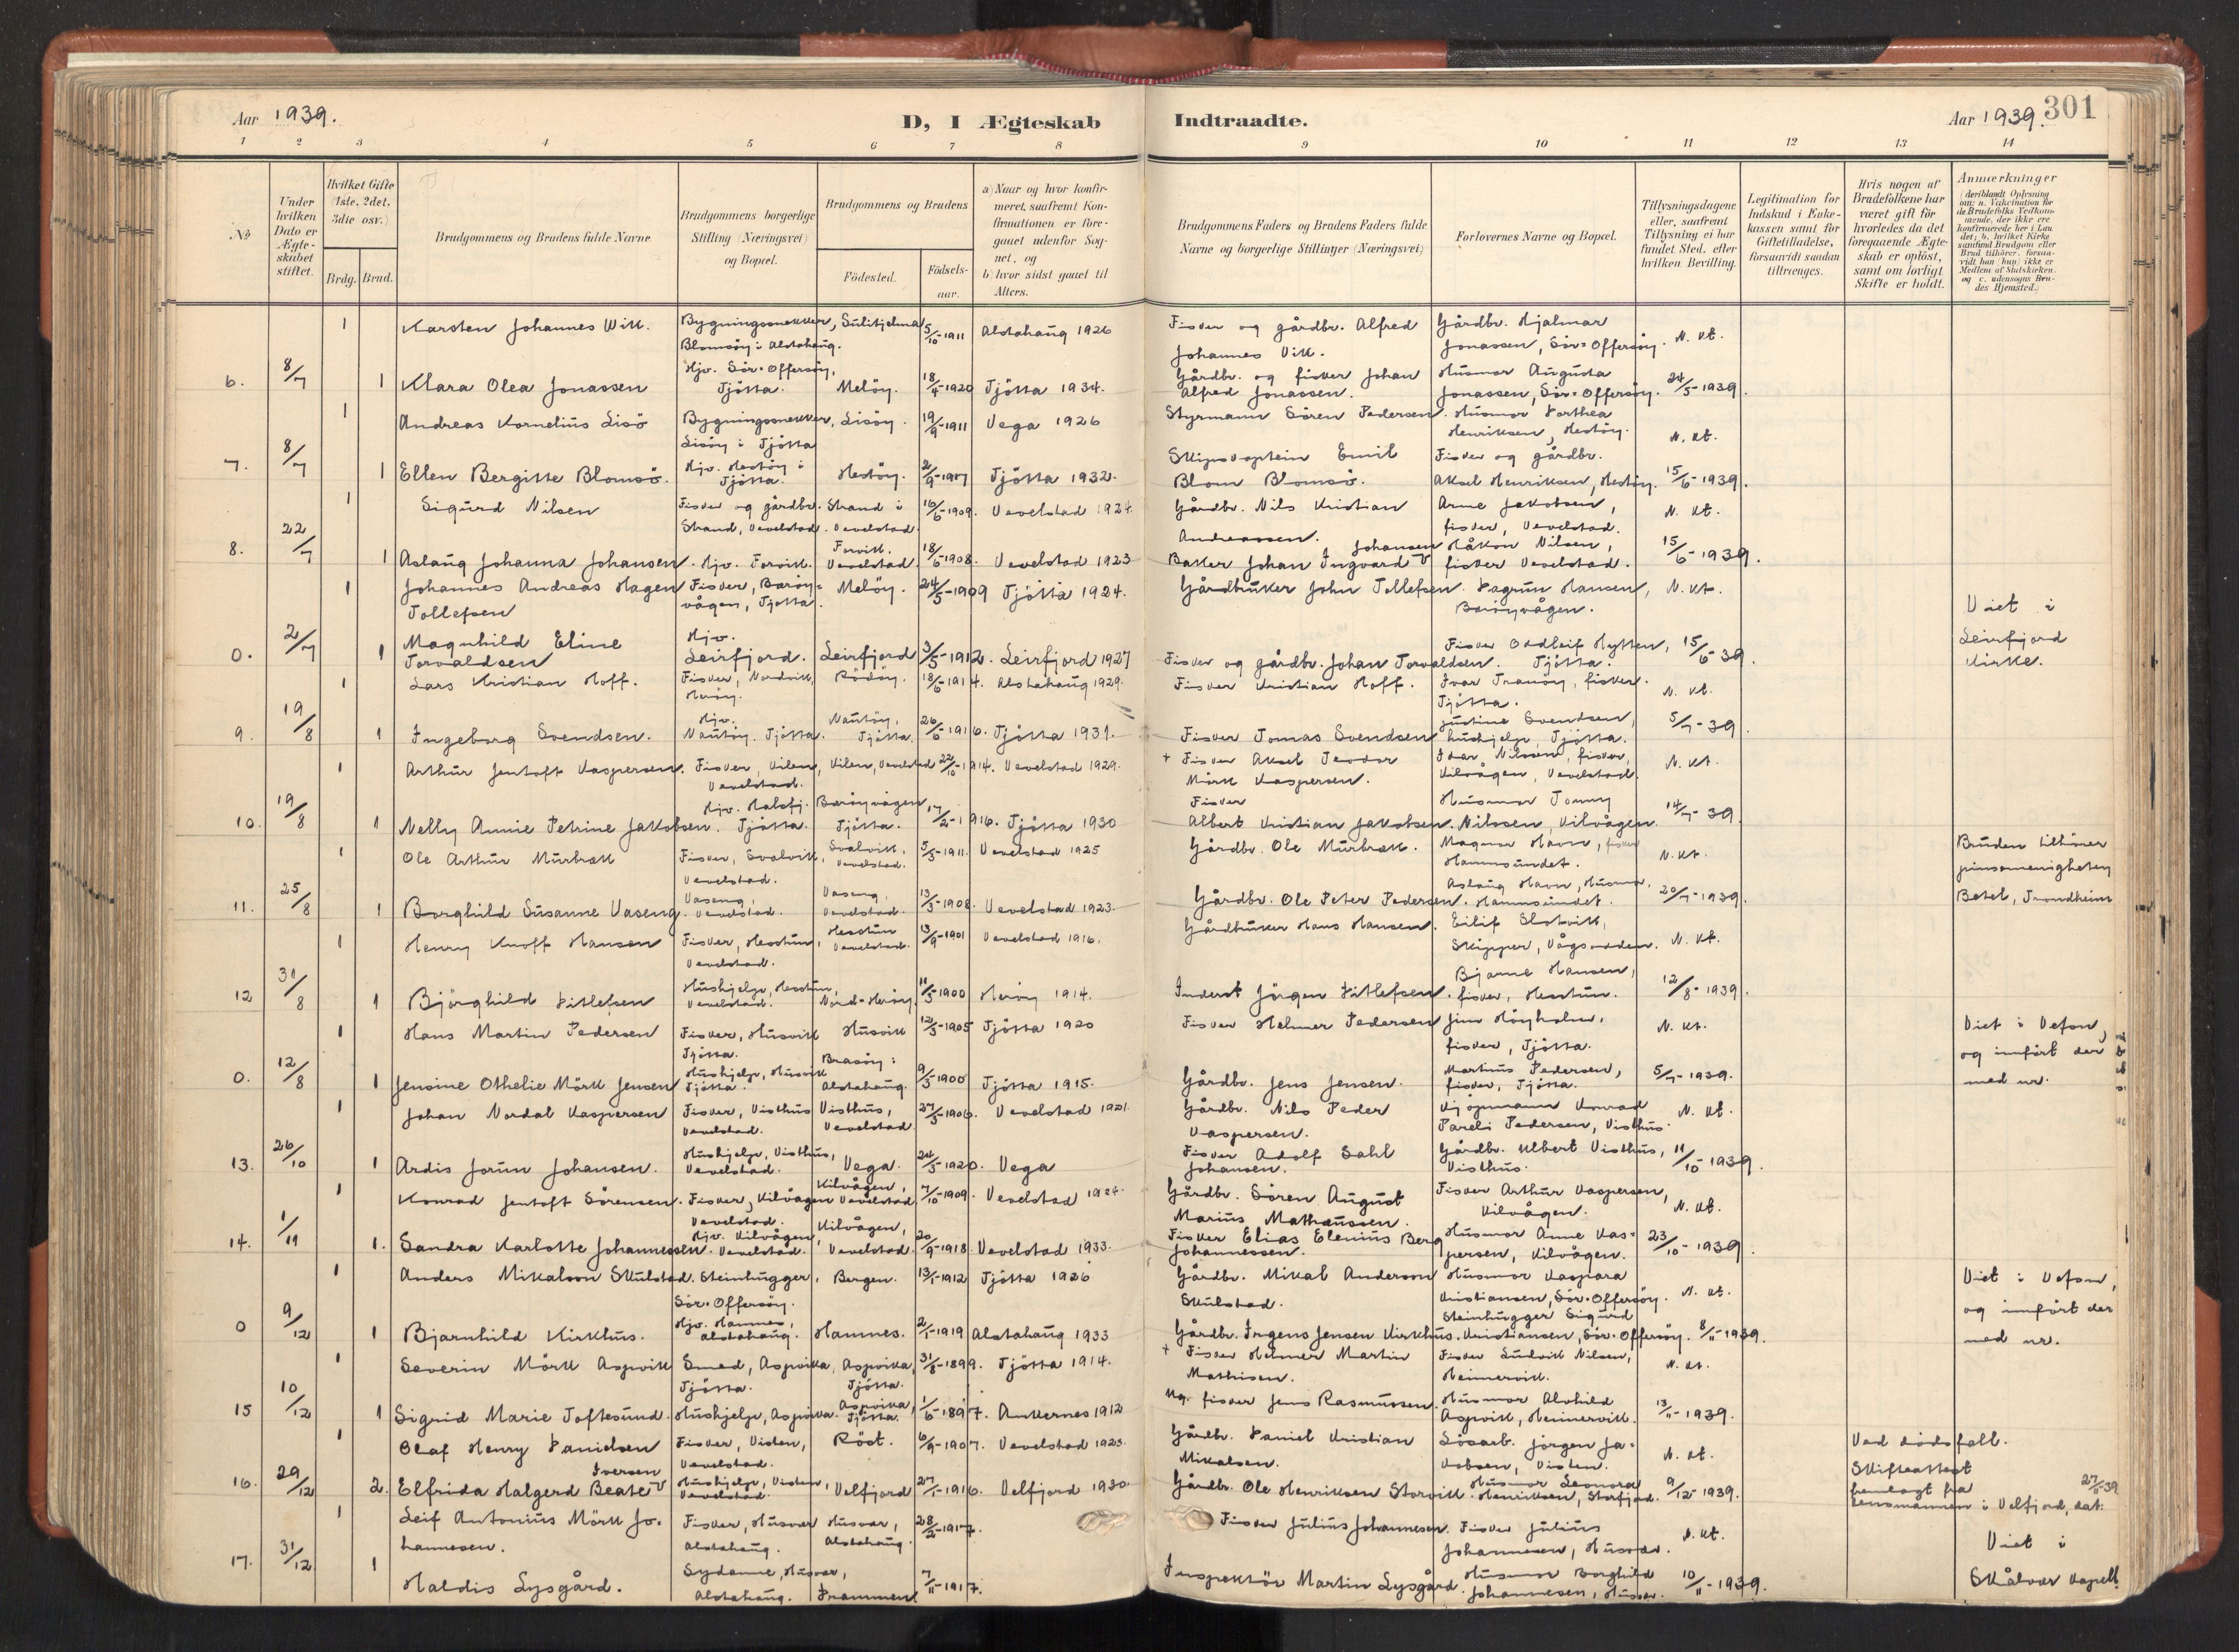 Aar 1939.
D, I Ægteskab
Indtraadte.
Aar 1939. 301
1 2 3 4 5 6 7 8 9 10 11 12 13 14
№
Under hvilken Dato er Ægteskabet stiftet.
Hvilket Gifte (1ste, 2det, 3die osv.)
Brdg. Brud.
Brudgommens og Brudens fulde Navne
Brudgommens borgerlige Stilling (Næringsvei) og Bopæl.
Brudgommens og Brudens
Födested.
Födsels-aar.
a) Naar og hvor konfirmeret, saafremt Konfirmationen er foregaaet udenfor Sognet, og b) hvor sidst gaaet til Alters.
Brudgommens Faders og Brudens Faders fulde Navne og borgerlige Stillinger (Næringsvei)
Forlovernes Navne og Bopæl.
Tillysningsdagene eller, saafremt Tillysning ei har fundet Sted, efter hvilken Bevilling.
Legitimation for Indskud i Enkekassen samt for Giftetilladelse, forsaavidt saadan tiltrænges.
Hvis nogen af Brudefolkene har været gift för hvorledes da det foregaaende Ægteskab er oplöst, samt om lovligt Skifte er holdt.
Anmærkninger
(deriblandt Oplysning om: a. Vakcination for de Brudefolks Vedkommende, der ikke ere konfirmerede her i Landet; b. hvilket Kirkesamfund Brudgom eller Brud tilhörer, forsaavidt han (hun) ikke er Medlem af Statskirken, og c. udensogns Brudes Hjemsted.)
1 Karsten Johannes Wik. Bygningssnekker, Blomsöy i Alstahaug. Sulitjelma 5/10-1911 Alstahaug 1926 Fisker og gårdbr. Alfred Johannes Vik. Gårdbr. Hjalmar Jonassen, Sör-Offersöy. N. kt.
6. 8/7 1 Klara Olea Jonassen Hjv. Sör-Offersöy, Tjötta. Melöy. 18/4-1920 Tjötta 1934. Gårdbr. og fisker Johan Alfred Jonassen. Husmor Augusta Jonassen, Sör-Offersöy. 24/5-1939.
1 Andreas Kornelius Lisö Bygningssnekker, Lisöy i Tjötta Lisöy. 19/9-1911 Vega 1926 Styrmann Sören Pedersen. Husmor Dorthea Henriksen, Hestöy. N. kt.
7. 8/7 1 Ellen Bergitte Blomsö. Hjv. Hestöy i Tjötta. Hestöy. 2/9-1917 Tjötta 1932. Skipskaptein Emil Blom Blomsö. Fisker og gårdbr. Aksel Henriksen, Hestöy. 15/6-1939.
1 Sigurd Nilsen Fisker og gårdbr. Strand, Vevelstad. Strand i Vevelstad. 16/6-1909. Vevelstad 1924. Gårdbr. Nils Kristian Andreassen. Arne Jakobsen, fisker, Vevelstad. N. kt.
8. 22/7 1 Aslaug Johanna Johansen. Hjv. Forvik. Forvik. Vevelstad 18/6-1908. Vevelstad 1923 Baker Johan Ingvard Johansen Håkon Nilsen, fisker Vevelstad. 15/6-1939.
1 Johannes Andreas Hagen Tollefsen Fisker, Baröyvågen, Tjötta. Melöy. 24/5-1909 Tjötta 1924. Gårdbruker John Tollefsen. Dagrun Hansen, Baröyvågen. N. kt.
0. 2/7 1 Magnhild Eline Torvaldsen Hjv. Leirfjord. Leirfjord 3/5-1912. Leirfjord 1927 Fisker og gårdbr. Johan Torvaldsen. Fisker Oddleif Hytten, Tjötta. 15/6-39. Viet i Leirfjord kirke.
1 Lars Kristian Hoff. Fisker, Nordvik, Heröy. Rödöy. 18/6-1914. Alstahaug 1929. Fisker Kristian Hoff. Ivar Tranöy, fisker. Tjötta. N. kt.
9. 19/8 1 Ingeborg Svendsen. Hjv. Nautöy, Tjötta. Nautöy, Tjötta. 26/6-1916. Tjötta 1931. Fisker Tomas Svendsen Justine Svendsen, hushjelp, Tjötta. 5/7-39
1 Arthur Jentoft Kaspersen. Fisker, Vilen, Vevelstad. Vilen, Vevelstad 22/10-1914. Vevelstad 1929. + Fisker Aksel Teodor Mörk Kaspersen. Ivar Nilssen, fisker, Kilvågen, Vevelstad. N. kt.
10. 19/8 1 Nelly Annie Petrine Jakobsen. Hjv. Halsfj. Tjötta. Baröyvågen Tjötta. 17/2-1916. Tjötta 1930 Fisker Albert Kristian Jakobsen. Husmor Tonny Nilssen, Kilvågen. 14/7-39.
1 Ole Arthur Murbæk Fisker, Svalvik, Vevelstad. Svalvik, Vevelstad. 5/5-1911. Vevelstad 1925 Gårdbr. Ole Murbæk. Magnar Havn, fisker Hamnsundet. N. kt.
11. 25/8 1 Borghild Susanne Vaseng. Vaseng, Vevelstad. Vaseng, Vevelstad. 13/3-1908. Vevelstad 1923. Gårdbr. Ole Peter Pedersen. Aslaug Havn, Husmor, Hamnsundet. 20/7-1939. Bruden tilhörer pinsemenigheten Betel, Trondheim
1 Henry Knoff Hansen Fisker, Hesstun, Vevelstad. Hesstun Vevelstad. 13/9-1901 Vevelstad 1916. Gårdbruker Hans Hansen. Eilif Slotvik, Skipper, Vågsodden. N. kt.
12 31/8 1 Björghild Ditlefsen Hushjelp, Hesstun, Vevelstad. Nord-Heröy. 11/5-1900 Heröy 1914. Inderst Jörgen Ditlefsen. Bjarne Hansen, fisker, Hesstun. 12/8-1939.
1 Hans Martin Pedersen Fisker, Husvik Tjötta. Husvik 12/3-1905 Tjötta 1920 Fisker Helmer Pedersen Jim Höyholm, fisker, Tjötta. N. kt. Viet i Vefsn, og innfört der med nr.
0. 12/8 1 Jensine Othelie Mörk Jensen Hushjelp, Husvik Tjötta. Brasöy i Alstahaug. 9/3-1900 Tjötta 1915. Gårdbr. Jens Jensen. Martinus Pedersen, fisker, Tjötta. 5/7-1939.
1 Johan Nordal Kaspersen Fisker, Visthus Vevelstad. Visthus, Vevelstad 27/5-1906. Vevelstad 1921. Gårdbr. Nils Peder Kaspersen. Kjöpmann Konrad Pareli Pedersen, Visthus. N. kt.
13. 26/10 1 Ardis Jorun Johansen. Hushjelp, Visthus, Vevelstad. Vega. 24/5-1920. Vega Fisker Adolf Dahl Johansen. Gårdbr. Albert Visthus, Visthus. 11/10-1939.
1 Konrad Jentoft Sörensen. Fisker, Kilvågen Vevelstad. Kilvågen, Vevelstad 7/10-1909. Vevelstad 1924. Gårdbr. Sören August Marius Mathæussen. Fisker Arthur Kaspersen, Kilvågen. N. kt.
14. 1/11 1. Sandra Karlotte Johannessen. Hjv. Kilvågen, Vevelstad. Kilvågen, Vevelstad. 20/9-1918. Vevelstad 1933. Fisker Elias Elenius Berg Johannessen. Husmor Anne Kaspersen, Kilvågen. 23/10-1939.
1 Anders Mikalson Skulstad. Steinhugger, Sör-Offersöy. Bergen. 13/1-1912 Tjötta 1926 Gårdbr. Mikal Anderson Skulstad. Husmor Kaspara Kristiansen, Sör-Offersöy. N. kt. Viet i Vefsn, og innfört der med nr.
0 9/12 1 Bjarnhild Kirkhus. Hjv. Hamnes, Alstahaug. Hamnes. 2/1-1919 Alstahaug 1933 Gårdbr. Jrgens Jensen Kirkhus. Steinhugger Sigurd Kristiansen, Sör-Offersöy. 8/11-1939.
1 Severin Mörk Aspvik Smed, Aspvika, Tjötta. Aspvika, Tjötta. 31/8-1899. Tjötta 1914. + Fisker Helmer Martin Mathisen. Fisker Ludvik Nilsen, Heinervik. N. kt.
15 10/12 1 Sigrid Marie Toftesund. Hushjelp, Aspvika. Aspvika, Tjötta. 1/6-1897. Ankernes 1912 Ug. fisker Jens Rasmussen. Husmor Alvhild Aspvik, Heinervik. 13/11-1939.
1 Olaf Henry Danielsen Fisker, Visten, Vevelstad. Röst. 6/9-1907. Vevelstad 1923. Gårdbr. Daniel Kristian Mikalsen. Lösarb. Jörgen Jakobsen, Visten. N. kt. Ved dödsfall. Skifteattest fremlagt fra Lensmannen i Velfjord, dat. 27/11-39
16. 29/12 2. Elfrida Halgerd Beate Iversen Hushjelp, Visten, Vevelstad. Velfjord 27/1-1916. Velfjord 1930. Gårdbr. Ole Henriksen Storvik. Husmor Leonora Henriksen, Storfjord. 9/12-1939.
1 Leif Antonius Mörk Johannesen. Fisker, Husvær Alstahaug. Husvær, Alstahaug. 28/2-1917. Fisker Julius Johannesen. Fisker Julius Johannesen, Husvær. N. kt. Viet i Skålvær kapell.
17. 31/12 1 Haldis Lysgård. Sydame, Husvær, Alstahaug. Drammen 7/11-1917. Inspektör Martin Lysgård. Husmor Borghild Johannesen, Husvær. 10/11-1939.